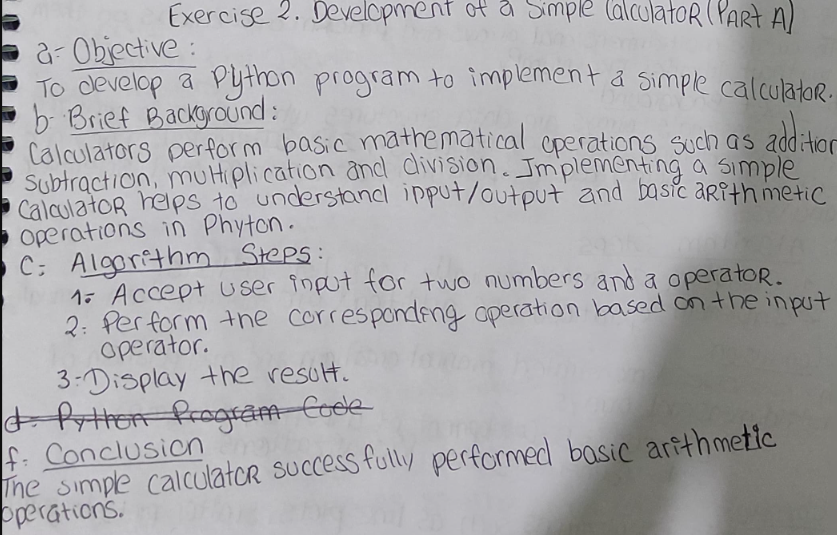 Exercise 2. Development of a Simple CalculatoR (PARt A)
a- Objective :
To develop a Python program to implement a simple calculatoR.
b- Brief Background:
Calculators perform basic mathematical operations such as addition
Subtraction, multiplication and division. Implementing a simple
CalculatoR helps to understand input/output and basic aRithmetic
operations in Phyton.
C: Algorithm Steps:
1- Accept user input for two numbers and a operatoR.
2: Perform the corresponding operation based on the input
operator.
3-Display the result.
d- Python Program Code
f- Conclusion
The simple calculatoR successfully performed basic arithmetic
operations.